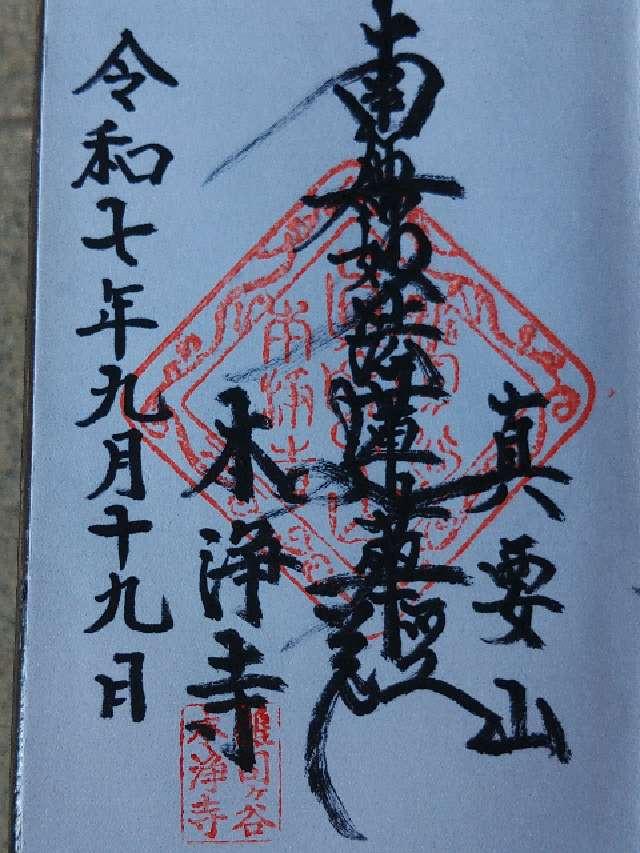 真要山
南無妙法蓮華経
本浄寺
雑司ヶ谷
本浄寺
令和七年九月十九日